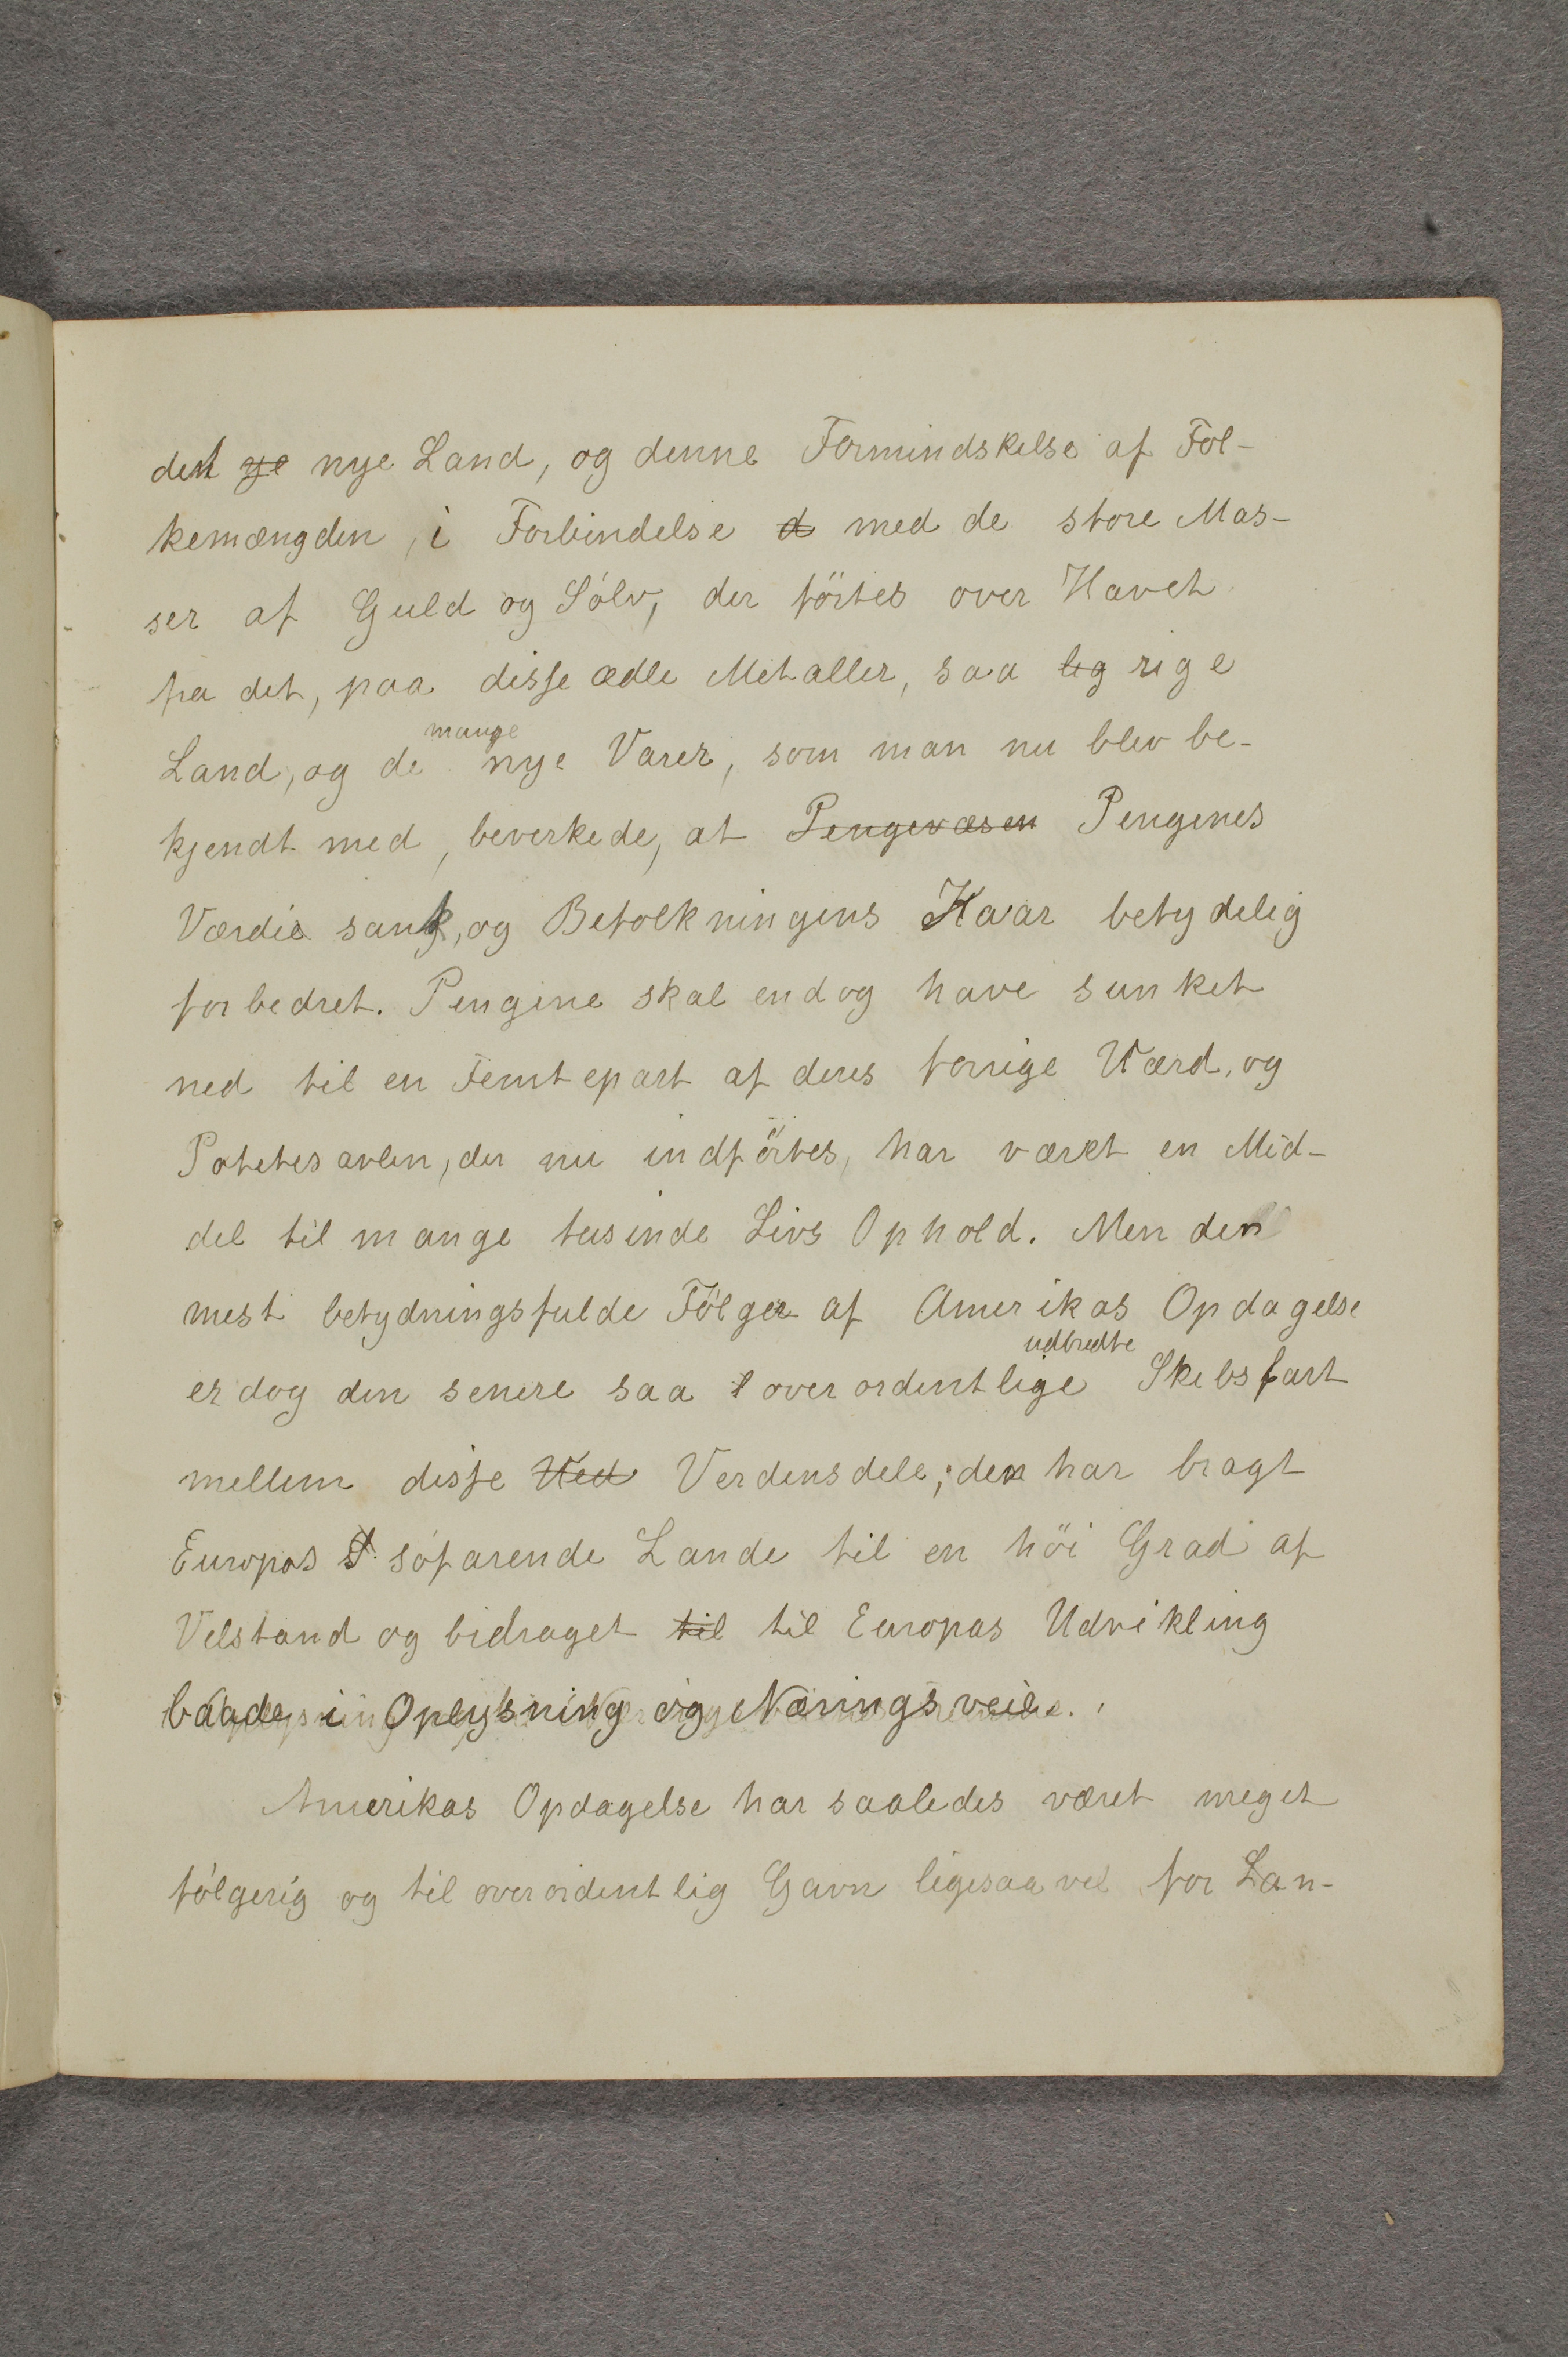 det ye nye Land, og denne Formindskelse af Fol-
kemængden, i Forbindelse d med de store Mas-
ser af Guld og Sölv, der förtes over Havet
fra det, paa disse ædle Metaller, saa lig rige
mange
Land, og de nye Varer, som man nu blev be-
kjendt med, bevirkede, at Pengevæsen Pengenes
Værdie sank, og Befolkningens Kaar betydelig
forbedret. Pengene skal endog have sunket
ned til en Femtepart af deres forrige Værd, og
Potetesavlen, der nu indförtes, har været en Mid-
del til mange tusinde Livs Ophold. Men den
mest betydningsfulde Fölge af Amerikas Opdagelse
udbredte
er dog den senere saa overordentlige Skibsfart
mellem disse Ved Verdensdele; den har bragt
Europas S söfarende Lande til en höi Grad af
Velstand og bidraget til til Europas Udvikling
baade i Oplysning og Næringsveie.
Amerikas Opdagelse har saaledes været meget
fölgerig og til overordentlig Gavn ligesaavel for Lan-